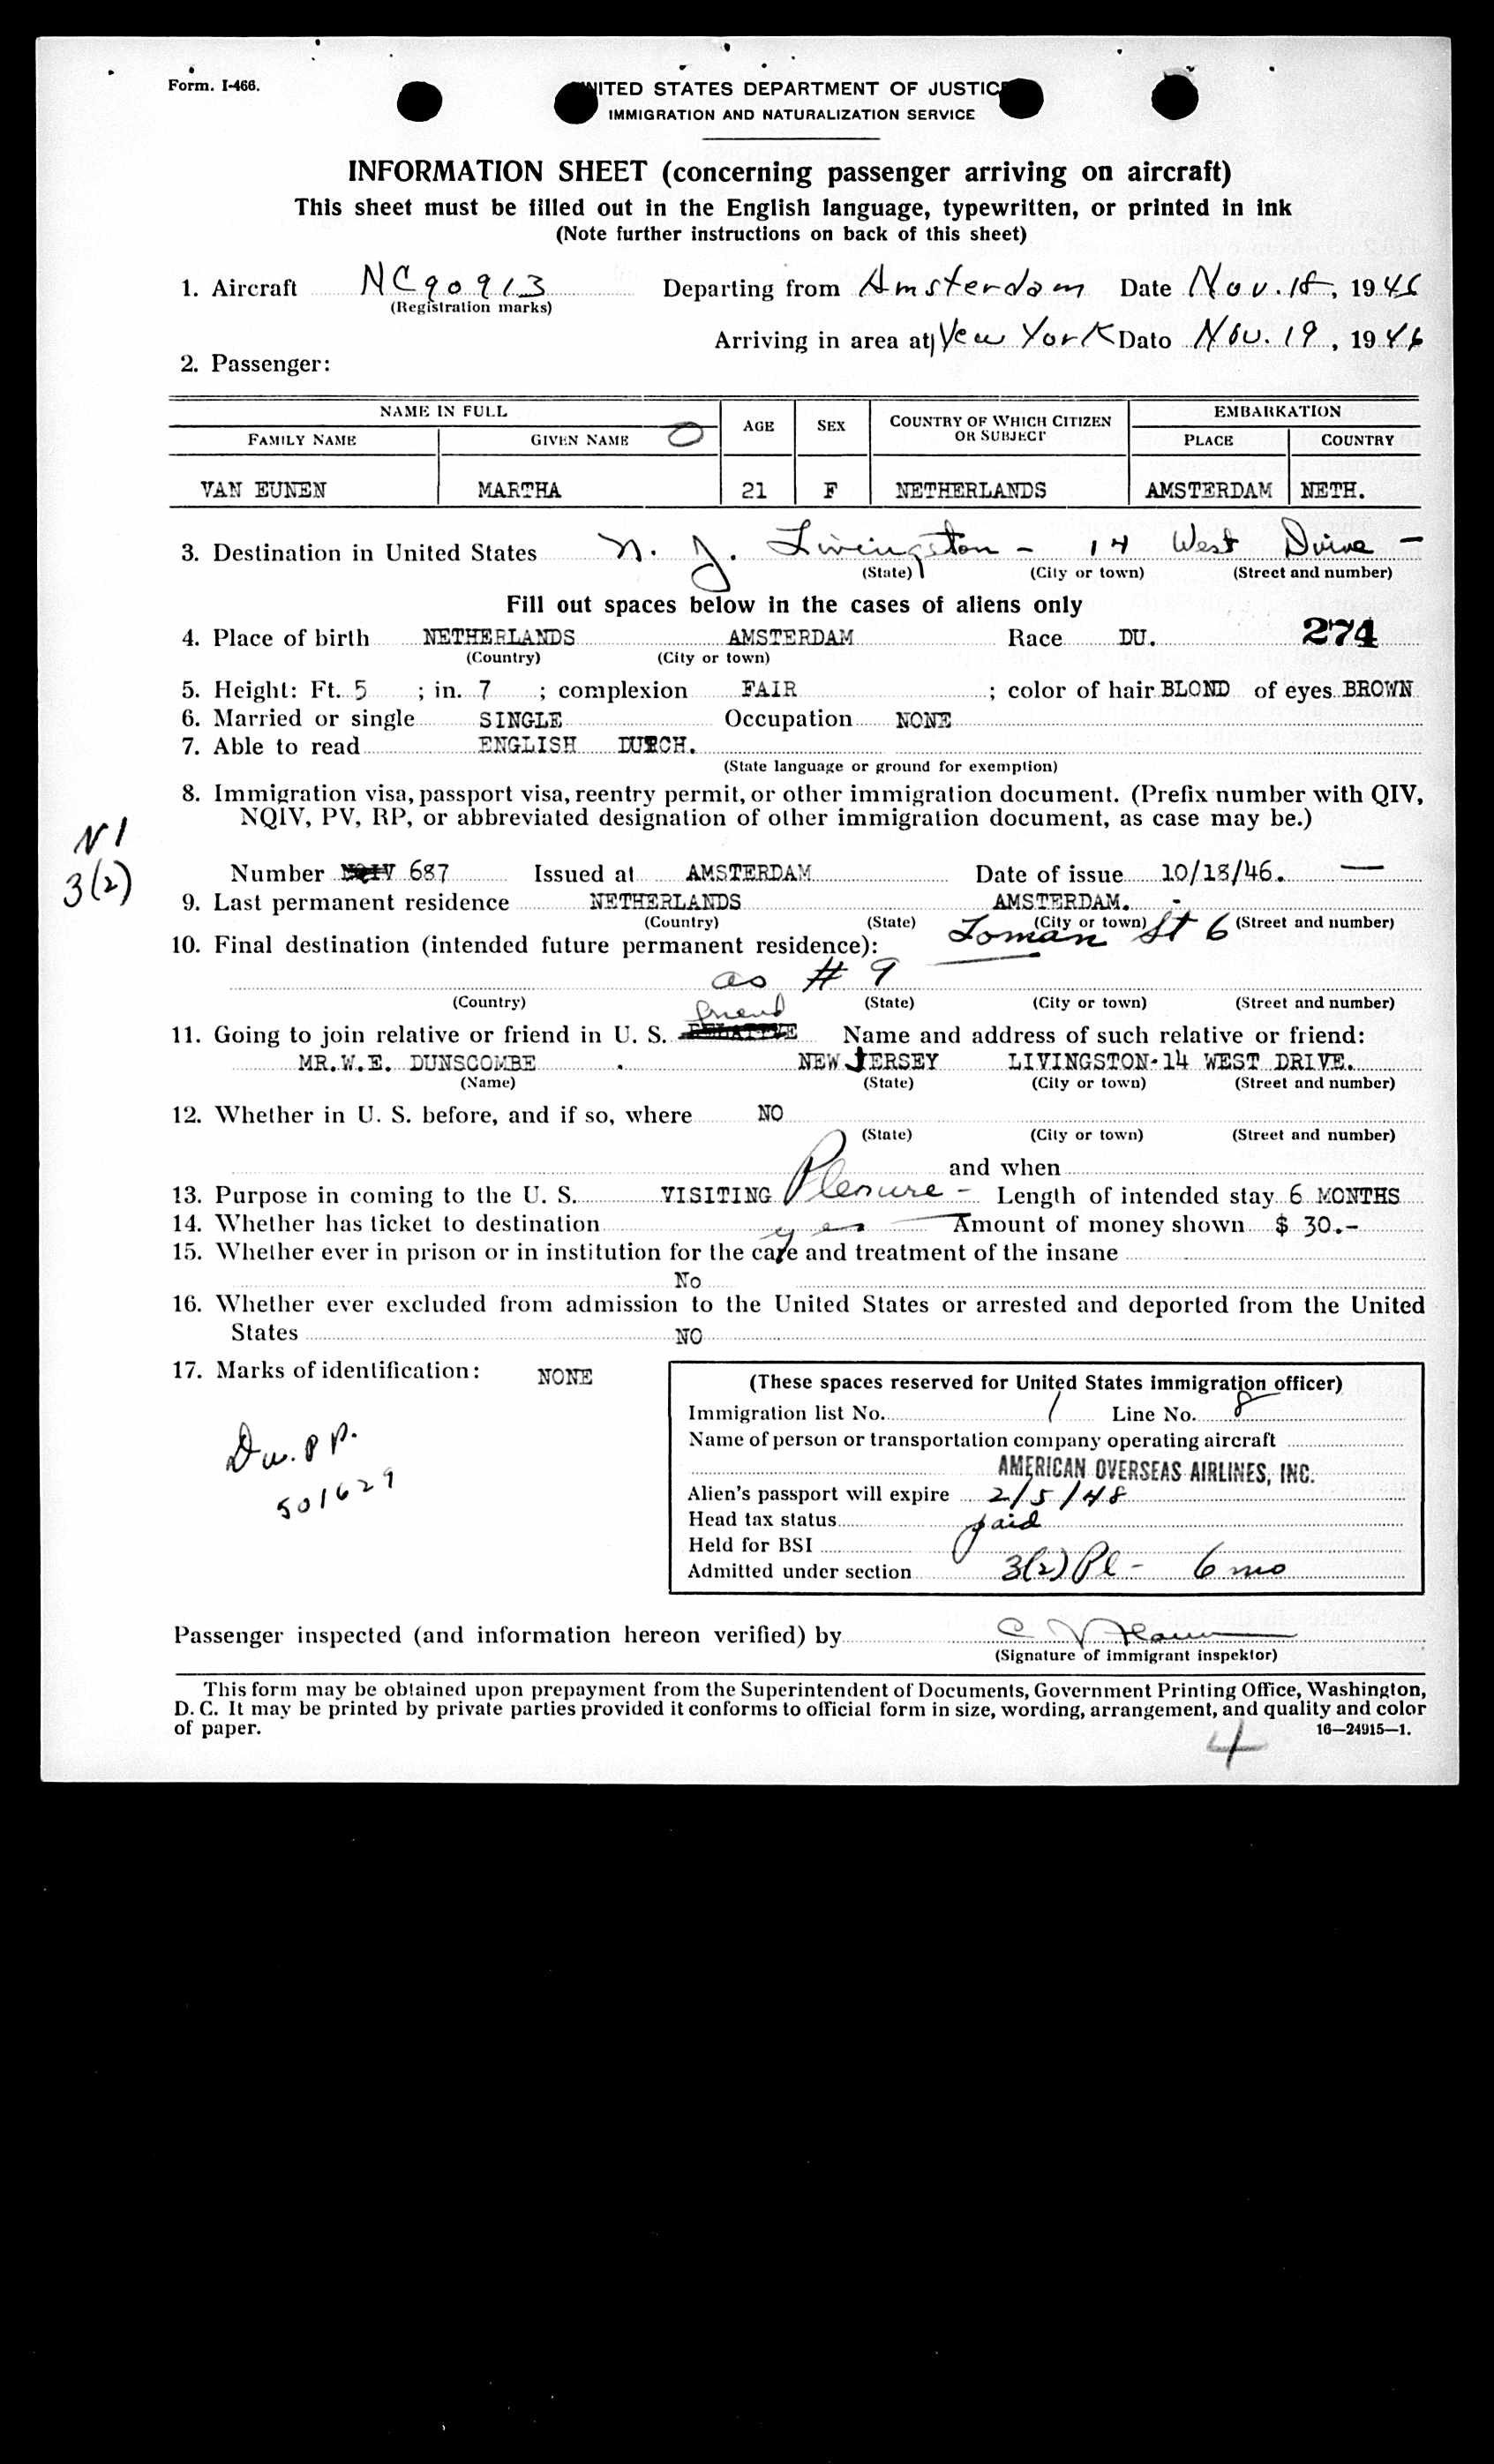 Form. I-466.
UNITED STATES DEPARTMENT OF JUSTICE
IMMIGRATION AND NATURALIZATION SERVICE
INFORMATION SHEET (concerning passenger arriving on aircraft)
This sheet must be filled out in the English language, typewritten, or printed in ink
(Note further instructions on back of this sheet)
1. Aircraft NC90913 Departing from Amsterdam Date Nov. 18, 1946
(Registration marks)
Arriving in area at New York Date Nov. 19, 1946
2. Passenger:
NAME IN FULL AGE SEX COUNTRY OF WHICH CITIZEN OR SUBJECT EMBARKATION
FAMILY NAME GIVEN NAME PLACE COUNTRY
VAN EUNEN MARTHA 21 F NETHERLANDS AMSTERDAM NETH.
3. Destination in United States N. J. Livingston - 14 West Drive -
(State) (City or town) (Street and number)
Fill out spaces below in the cases of aliens only
4. Place of birth NETHERLANDS AMSTERDAM Race DU. 274
(Country) (City or town)
5. Height: Ft. 5 ; in. 7 ; complexion FAIR ; color of hair BLOND of eyes BROWN
6. Married or single SINGLE Occupation NONE
7. Able to read ENGLISH DUTCH.
(State language or ground for exemption)
8. Immigration visa, passport visa, reentry permit, or other immigration document. (Prefix number with QIV,
NQIV, PV, RP, or abbreviated designation of other immigration document, as case may be.)
N1
3(2)
Number NQIV 687 Issued at AMSTERDAM Date of issue 10/18/46. —
9. Last permanent residence NETHERLANDS AMSTERDAM. -
(Country) (State) (City or town) (Street and number)
Toman St 6
10. Final destination (intended future permanent residence):
as # 9
(Country) (State) (City or town) (Street and number)
friend
11. Going to join relative or friend in U. S. RELATIVE Name and address of such relative or friend:
MR.W.E. DUNSCOMBE . NEW JERSEY LIVINGSTON-14 WEST DRIVE.
(Name) (State) (City or town) (Street and number)
12. Whether in U. S. before, and if so, where NO
(State) (City or town) (Street and number)
and when
13. Purpose in coming to the U. S. VISITING Plesure - Length of intended stay 6 MONTHS
14. Whether has ticket to destination yes Amount of money shown $ 30.-
15. Whether ever in prison or in institution for the care and treatment of the insane
No
16. Whether ever excluded from admission to the United States or arrested and deported from the United
States NO
17. Marks of identification: NONE
Du. PP.
501629
(These spaces reserved for United States immigration officer)
Immigration list No. 1 Line No. 8
Name of person or transportation company operating aircraft
AMERICAN OVERSEAS AIRLINES, INC.
Alien's passport will expire 2/5/48
Head tax status paid
Held for BSI
Admitted under section 3(2) Pl - 6 mo
Passenger inspected (and information hereon verified) by
(Signature of immigrant inspektor)
This form may be obtained upon prepayment from the Superintendent of Documents, Government Printing Office, Washington,
D. C. It may be printed by private parties provided it conforms to official form in size, wording, arrangement, and quality and color
of paper. 16—24915—1.
4